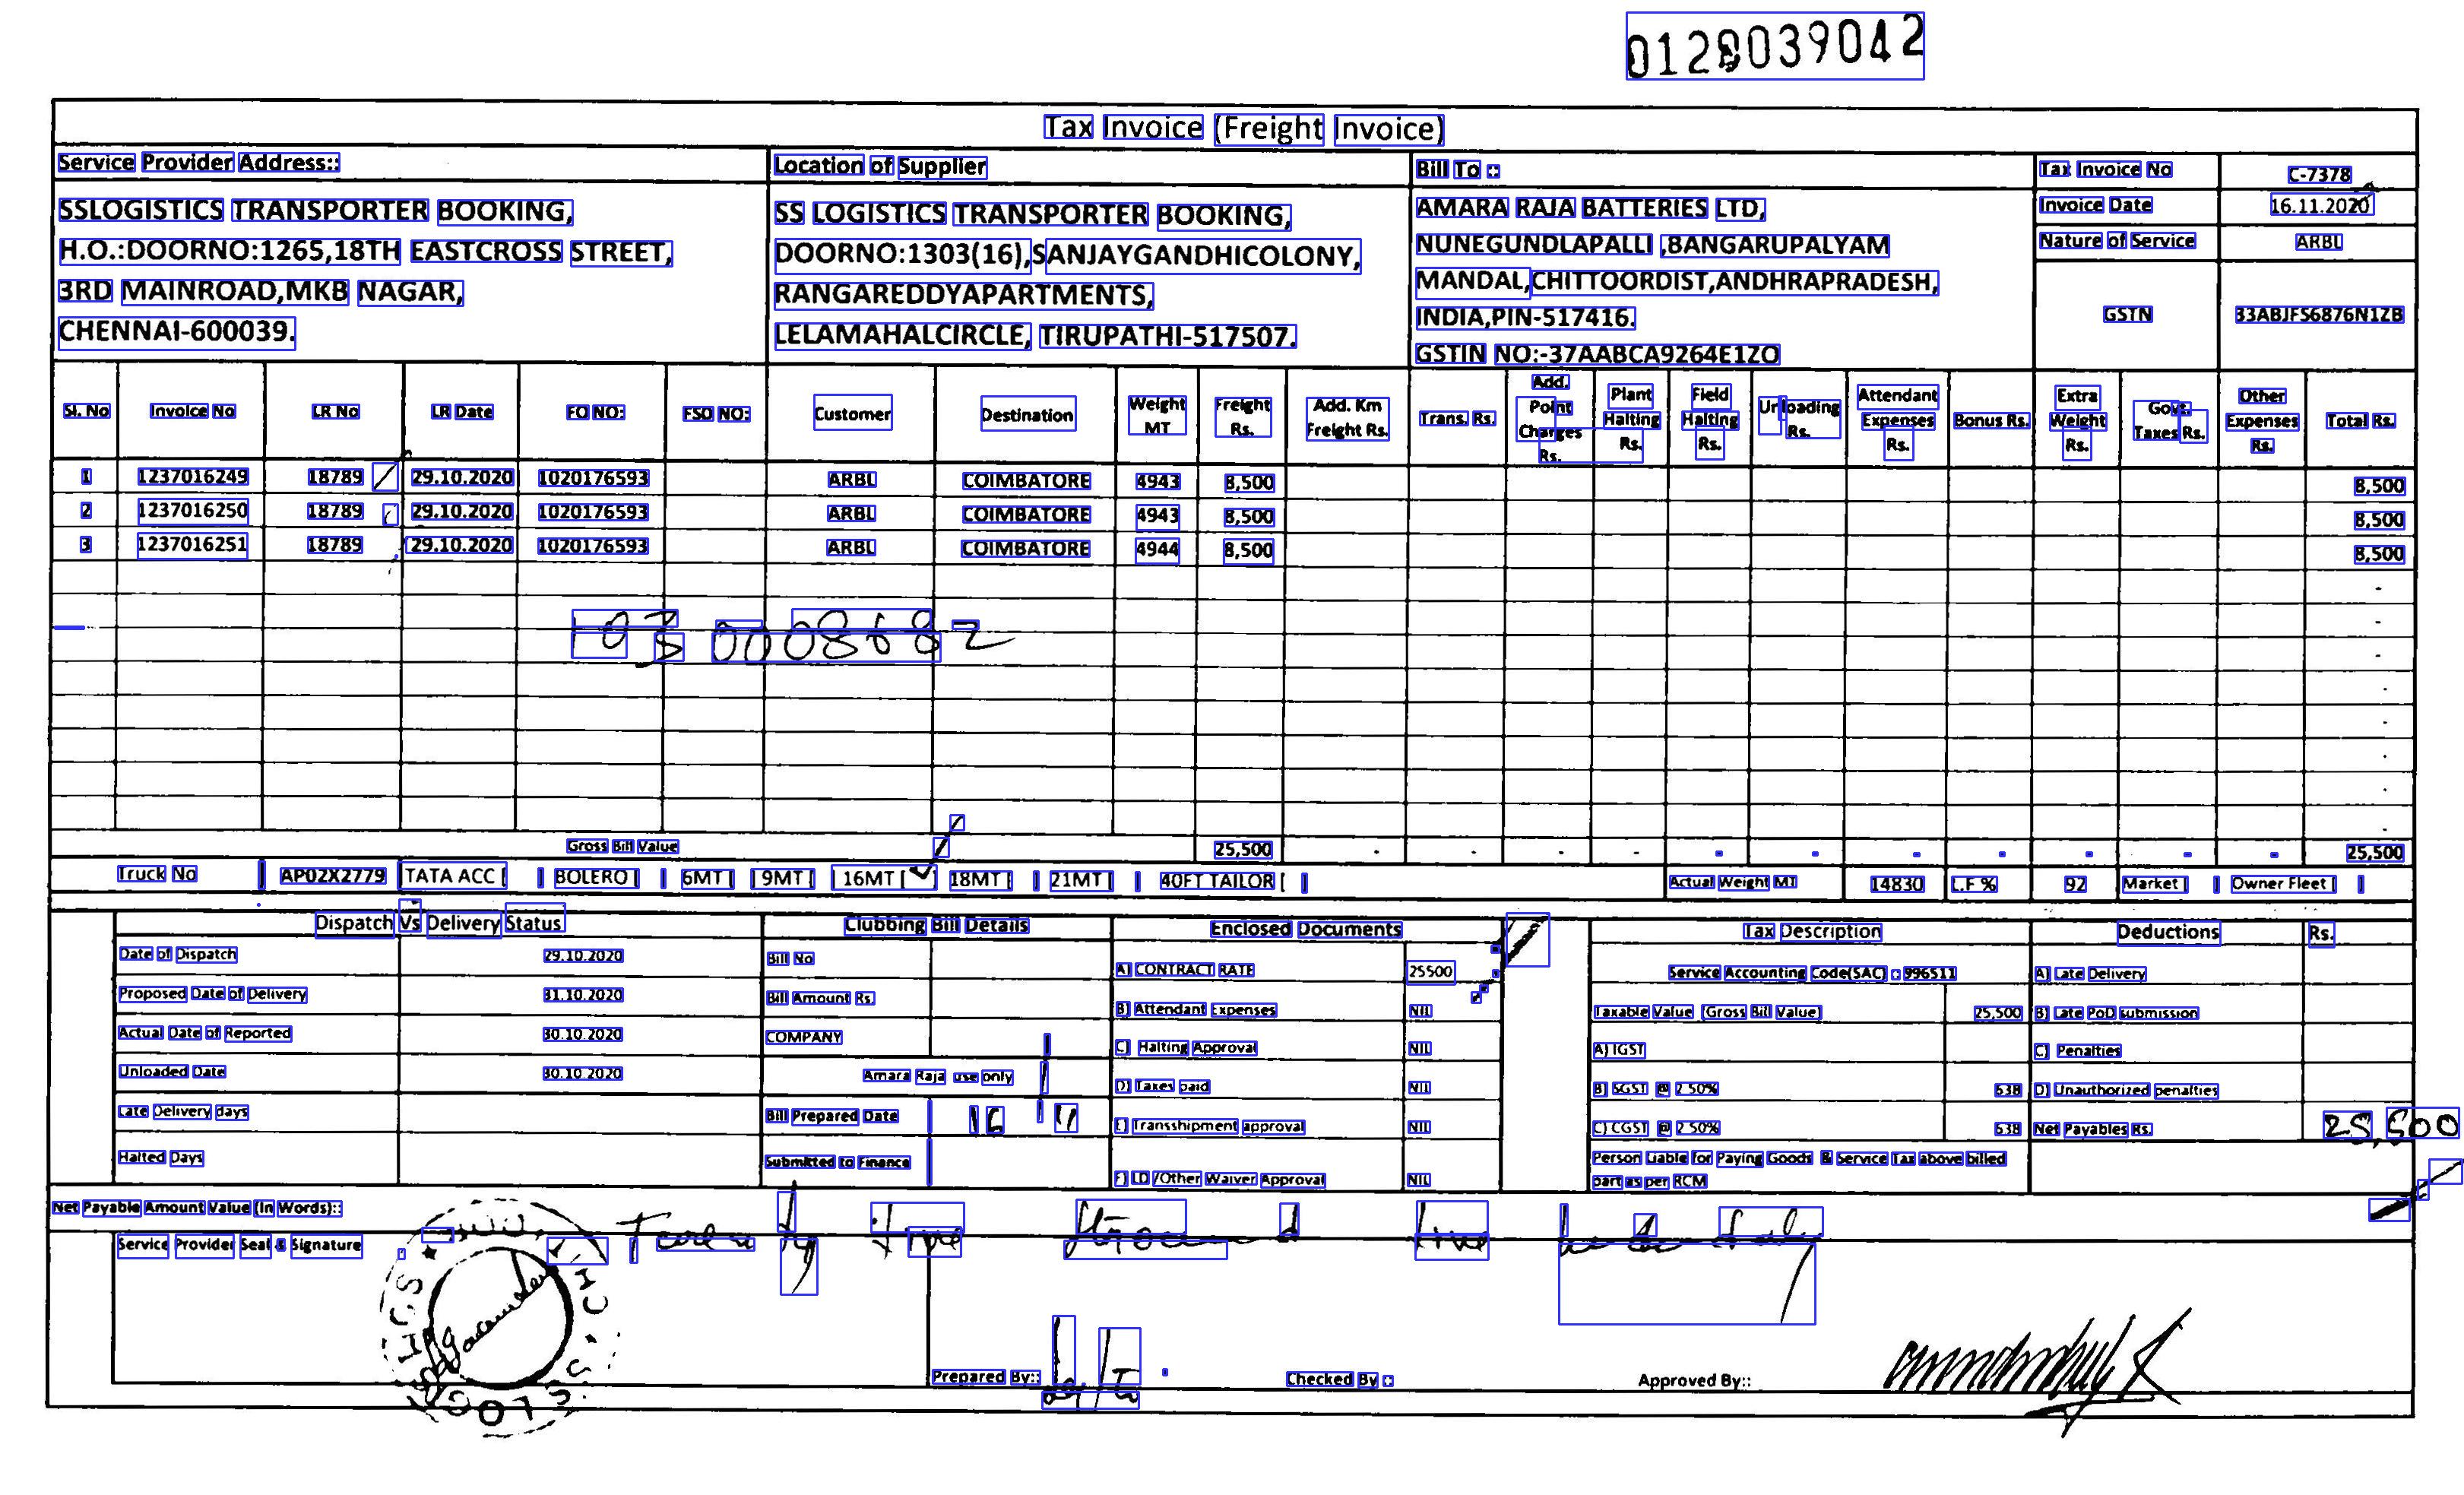 039042
Tax Invoice (Freight Invoice)
Service Provider Address::
SSLOGISTICS TRANSPORTER BOOKING,
H.O.:DOORNO:1265,18TH EASTCROSS STREET,
3RD MAINROAD,MKB NAGAR,
CHENNAI-600039.
Location of Supplier
SS LOGISTICS TRANSPORTER BOOKING,
DOORNO:1303(16),SANJAYGANDHICOLONY,
RANGAREDDYAPARTMENTS,
LELAMAHALCIRCLE, TIRUPATHI-517507.
Bill To :
AMARA RAJA BATTERIES LTD,
NUNEGUNDLAPALLI ,BANGARUPALYAM
MANDAL,CHITTOORDIST,ANDHRAPRADESH,
INDIA,PIN-517416.
GSTIN NO:-37AABCA9264E1ZO
Tax Invoice No C-7378
Invoice Date 16.11.2020
Nature of Service ARBL
GSTN 33ABJFS6876N1ZB
Sl. No Invoice No LR No LR Date FO NO: FSO NO: Customer Destination Weight MT Freight Rs. Add. Km Freight Rs. Trans. Rs. Add. Point Charges Rs. Plant Halting Rs. Field Halting Rs. Unloading Rs. Attendant Expenses Rs. Bonus Rs. Extra Weight Rs. Govt. Taxes Rs. Other Expenses Rs. Total Rs.
1 1237016249 18789 29.10.2020 1020176593 ARBL COIMBATORE 4943 8,500 8,500
2 1237016250 18789 29.10.2020 1020176593 ARBL COIMBATORE 4943 8,500 8,500
3 1237016251 18789 29.10.2020 1020176593 ARBL COIMBATORE 4944 8,500 8,500
0008682
Gross Bill Value 25,500 - - - - - - - - - - - 25,500
Truck No AP02X2779 TATA ACC [ ] BOLERO [ ] 6MT [ ] 9MT [ ] 16MT [✓] 18MT [ ] 21MT [ ] 40FT TAILOR [ ] Actual Weight MT 14830 L.F % 92 Market [ ] Owner Fleet [ ]
Dispatch Vs Delivery Status
Date of Dispatch 29.10.2020
Proposed Date of Delivery 31.10.2020
Actual Date of Reported 30.10.2020
Unloaded Date 30.10.2020
Late Delivery days
Halted Days
Clubbing Bill Details
Bill No
Bill Amount Rs.
COMPANY
Amara Raja use only
Bill Prepared Date 16 11
Submitted to Finance
Enclosed Documents
A) CONTRACT RATE 25500
B) Attendant Expenses NIL
C) Halting Approval NIL
D) Taxes paid NIL
E) Transshipment approval NIL
F) LD /Other Waiver Approval NIL
Tax Description
Service Accounting Code(SAC) : 996511
Taxable Value (Gross Bill Value) 25,500
A) IGST
B) SGST @ 2.50% 638
C) CGST @ 2.50% 638
Person Liable for Paying Goods & Service Tax above billed
part as per RCM
Deductions Rs.
A) Late Delivery
B) Late PoD submission
C) Penalties
D) Unauthorized penalties
Net Payables Rs. 25,500
Net Payable Amount Value (In Words)::
Service Provider Seal & Signature
Prepared By::
Checked By :
Approved By::